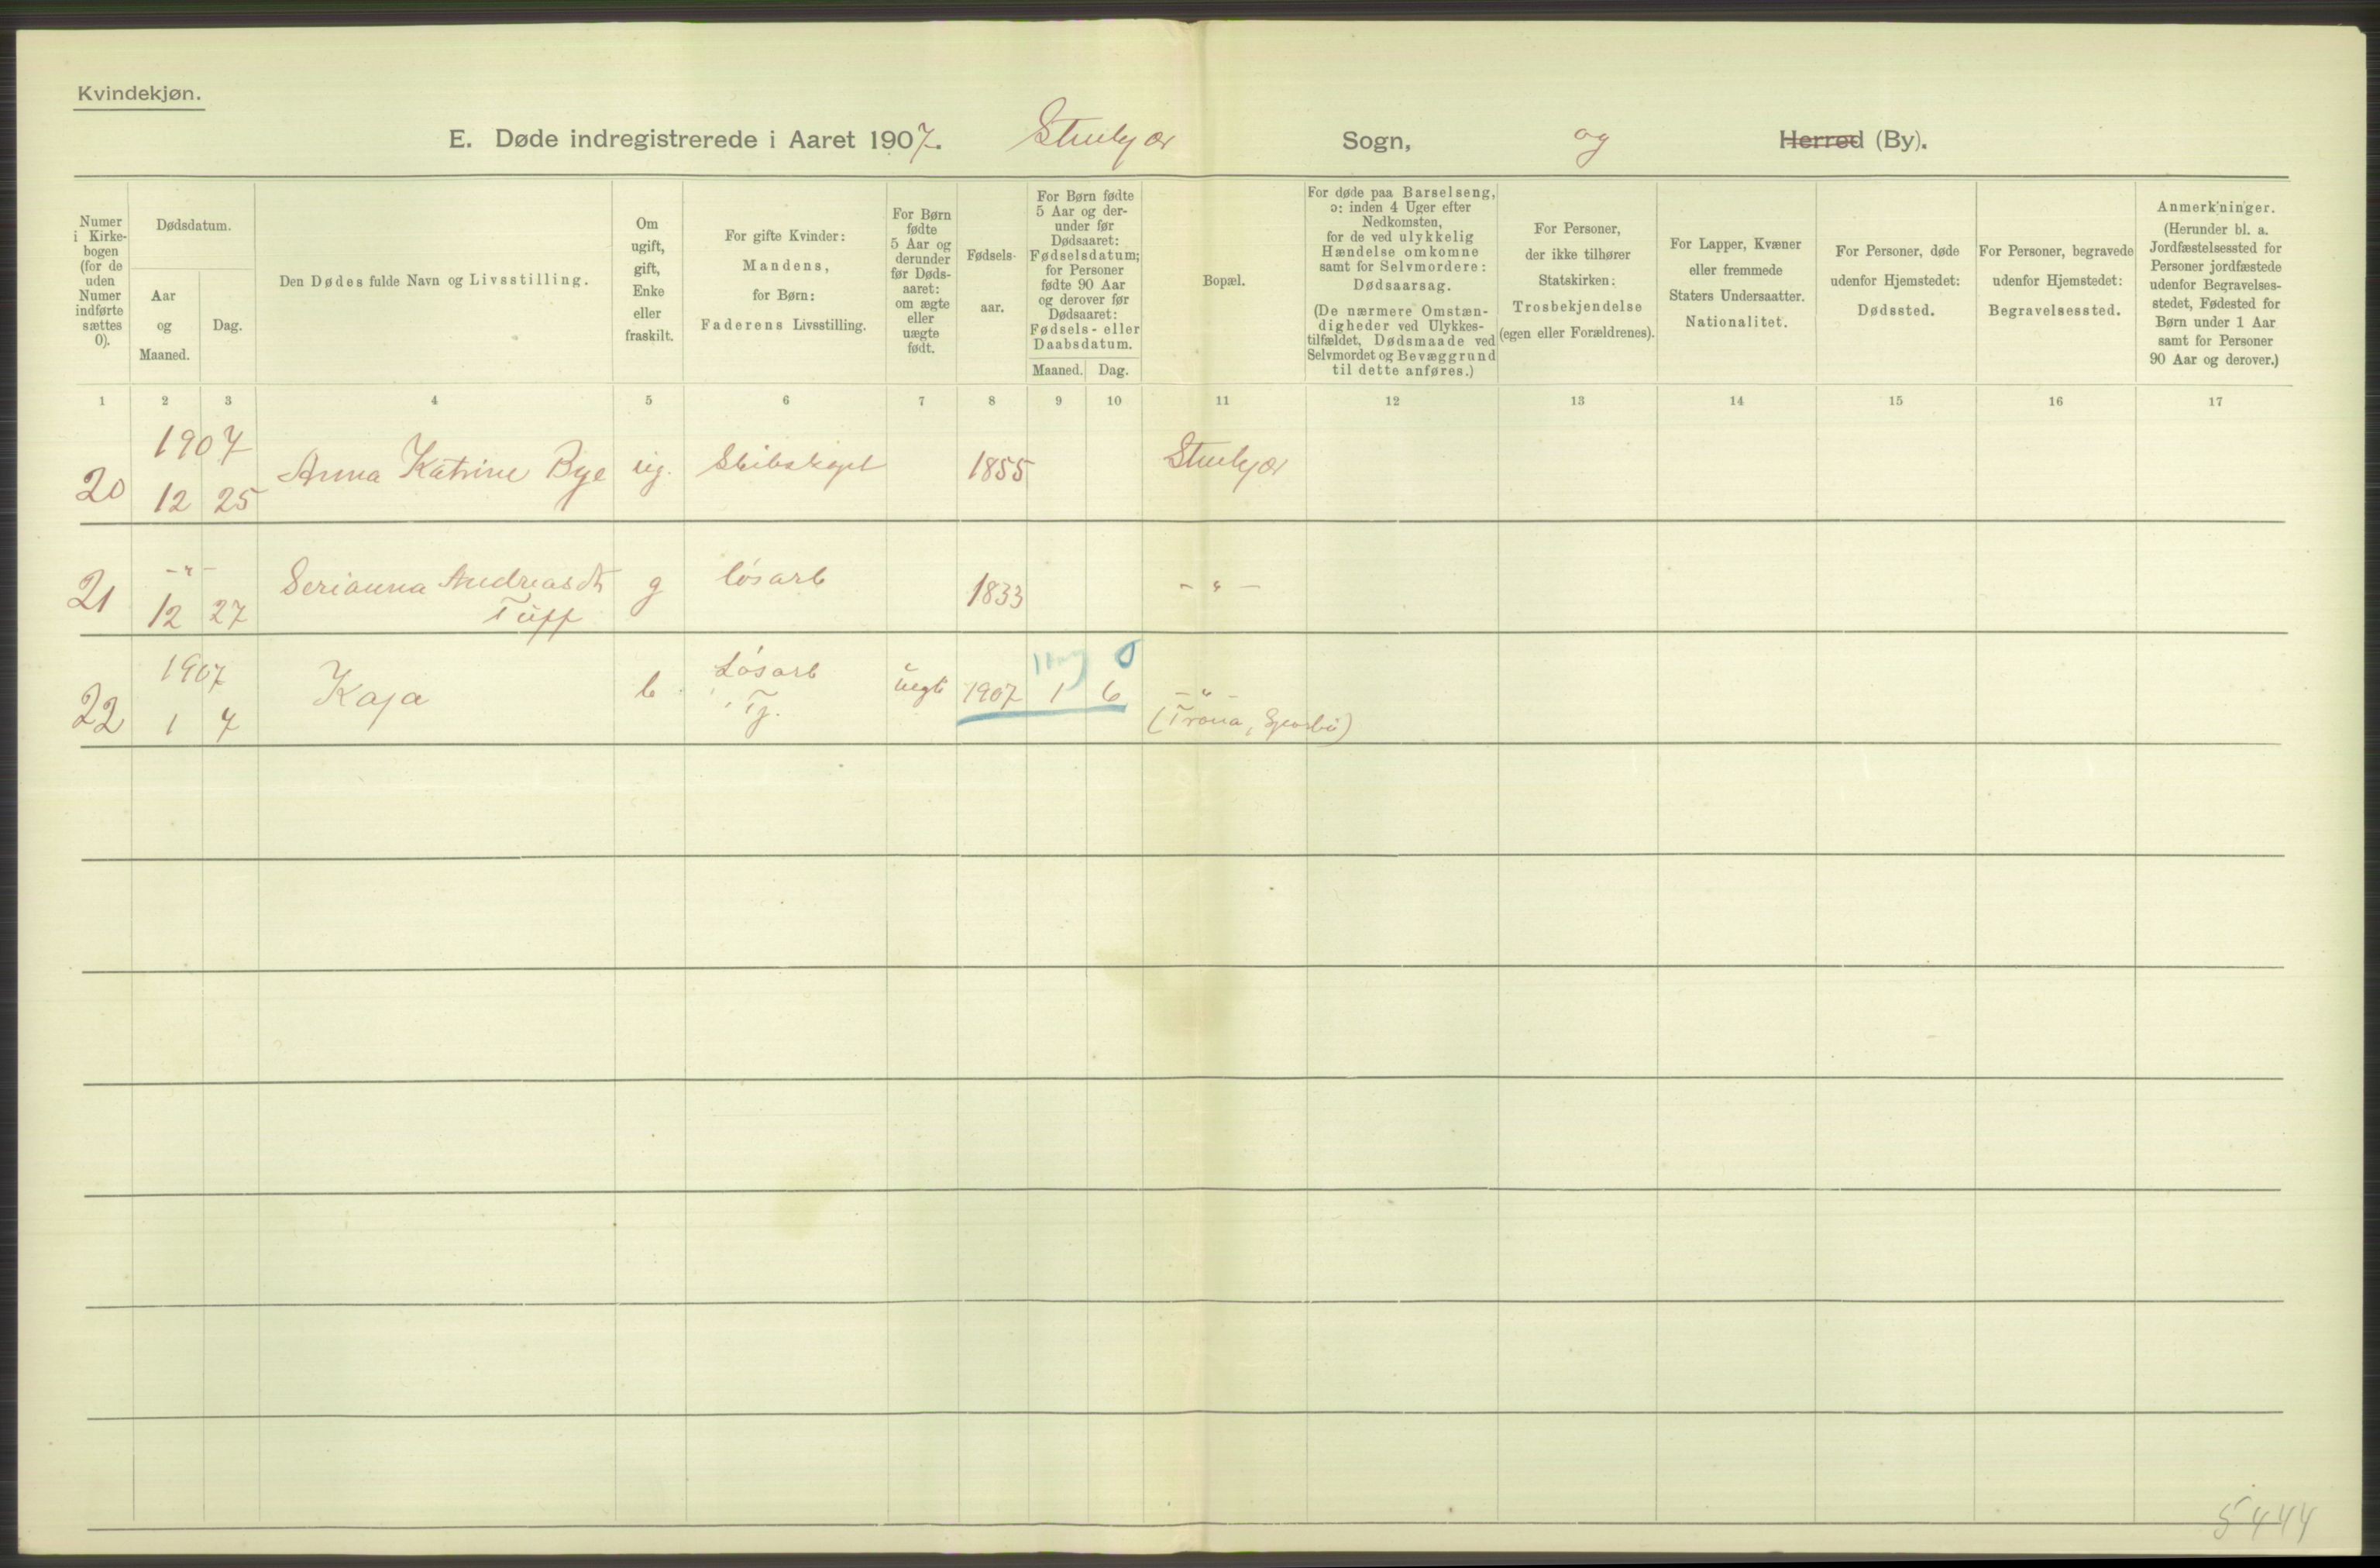 Kvindekjøn.
E. Døde indregistrerede i Aaret 1907. Stenkjær Sogn, og Herred (By).
Numer
i Kirke-
bogen
(for de
uden
Numer
indførte
sættes
0).
Dødsdatum.
Aar
og
Maaned.
Dag.
Den Dødes fulde Navn og Livsstilling.
Om
ugift,
gift,
Enke
eller
fraskilt.
For gifte Kvinder:
Mandens,
for Børn:
Faderens Livsstilling.
For Børn
fødte
5 Aar og
derunder
før Døds-
aaret:
om ægte
eller
uægte
født.
Fødsels-
aar.
For Børn fødte
5 Aar og der-
under før
Dødsaaret:
Fødselsdatum;
for Personer
fødte 90 Aar
og derover før
Dødsaaret:
Fødsels- eller
Daabsdatum.
Maaned. Dag.
Bopæl.
For døde paa Barselseng,
ɔ: inden 4 Uger efter
Nedkomsten,
for de ved ulykkelig
Hændelse omkomne
samt for Selvmordere:
Dødsaarsag.
(De nærmere Omstæn-
digheder ved Ulykkes-
tilfældet, Dødsmaade ved
Selvmordet og Bevæggrund
til dette anføres.)
For Personer,
der ikke tilhører
Statskirken:
Trosbekjendelse
(egen eller Forældrenes).
For Lapper, Kvæner
eller fremmede
Staters Undersaatter.
Nationalitet.
For Personer, døde
udenfor Hjemstedet:
Dødssted.
For Personer, begravede
udenfor Hjemstedet:
Begravelsessted.
Anmerkninger.
(Herunder bl. a.
Jordfæstelsessted for
Personer jordfæstede
udenfor Begravelses-
stedet, Fødested for
Børn under 1 Aar
samt for Personer
90 Aar og derover.)
1 2 3 4 5 6 7 8 9 10 11 12 13 14 15 16 17
1907
20 12 25 Anna Katrine Bye ug. 1855 Stenkjær
-"-
21 12 27 Serianna Andreasdt g løsarb 1833 -"-
Tuff
1907
22 1 7 Kaja b Løsarb uegt 1907 1 6 -"-
Tj.
5444